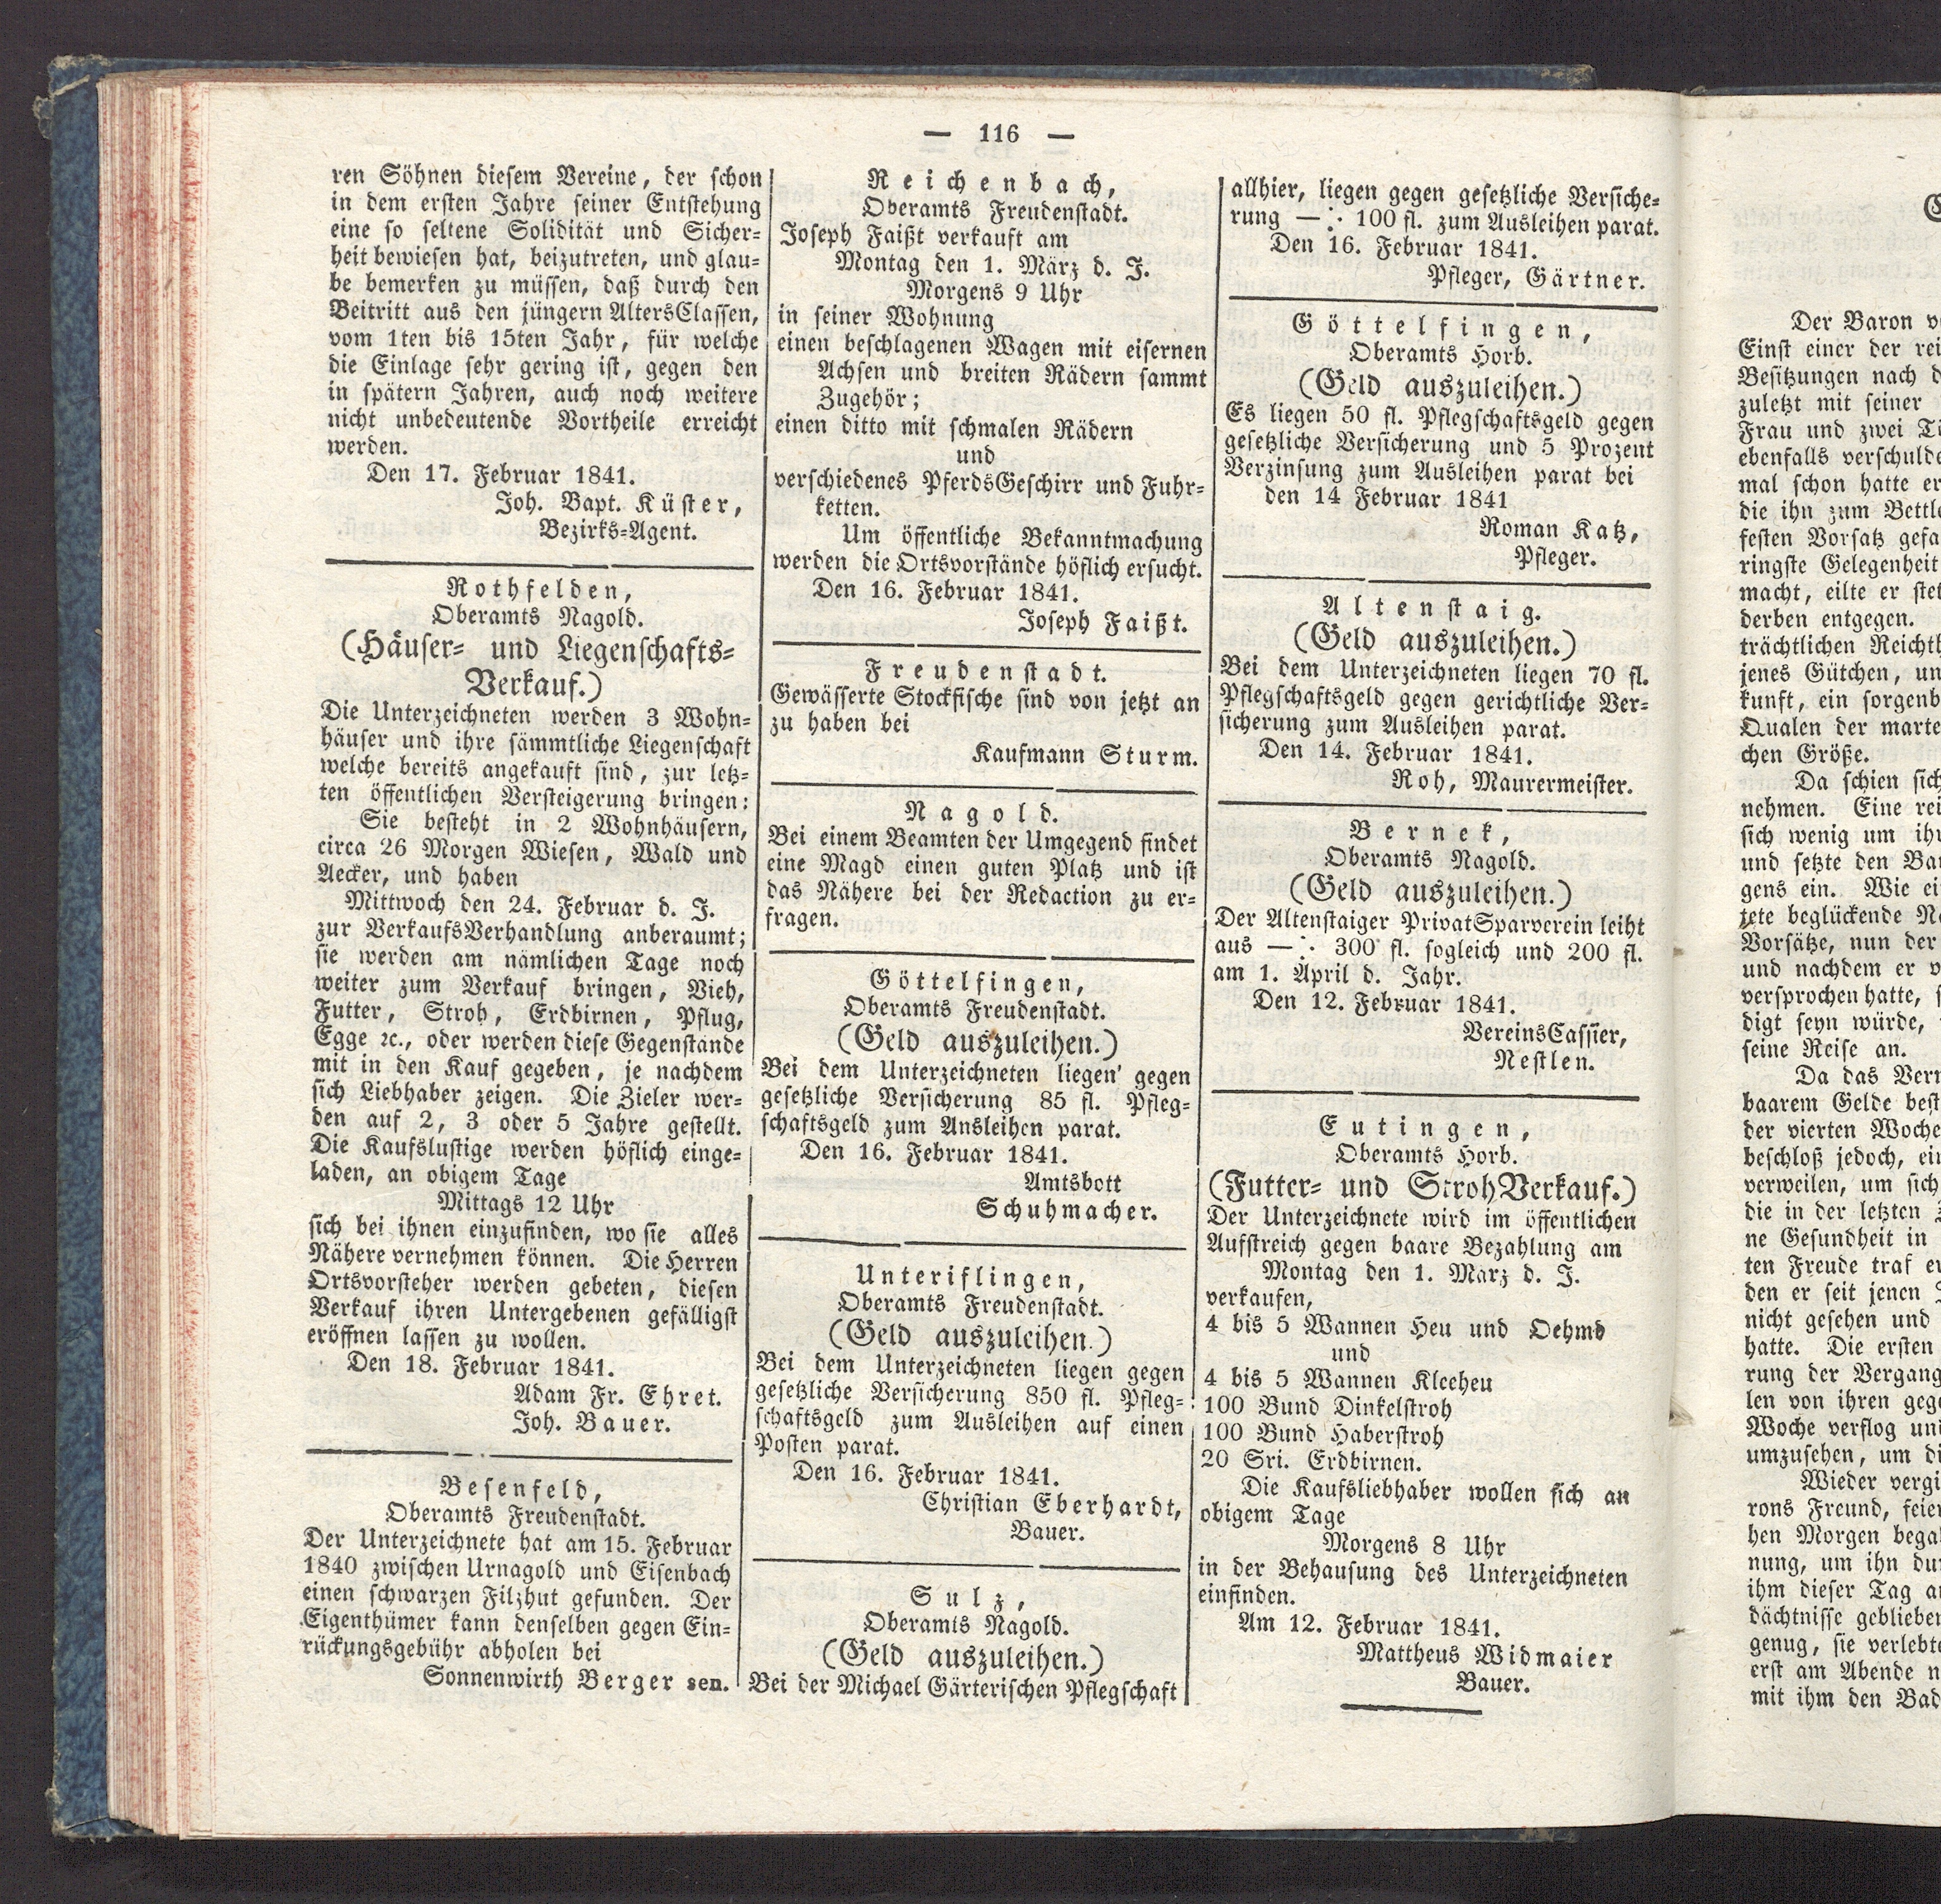 — 116 —
ren Söhnen diesem Vereine, der schon
in dem ersten Jahre seiner Entstehung
eine so seltene Solidität und Sicher-
heit bewiesen hat, beizutreten, und glau-
be bemerken zu müssen, daß durch den
Beitritt aus den jüngern AltersClassen,
vom 1ten bis 15ten Jahr, für welche
die Einlage sehr gering ist, gegen den
in spätern Jahren, auch noch weitere
nicht unbedeutende Vortheile erreicht
werden.
Den 17. Februar 1841.
Joh. Bapt. Küster,
Bezirks-Agent.
Rothfelden,
Oberamts Nagold.
(Häuser- und Liegenschafts-
Verkauf.)
Die Unterzeichneten werden 3 Wohn-
häuser und ihre sämmtliche Liegenschaft
welche bereits angekauft sind, zur letz-
ten öffentlichen Versteigerung bringen:
Sie besteht in 2 Wohnhäusern,
circa 26 Morgen Wiesen, Wald und
Aecker, und haben
Mittwoch den 24. Februar d. J.
zur VerkaufsVerhandlung anberaumt;
sie werden am nämlichen Tage noch
weiter zum Verkauf bringen, Vieh,
Futter, Stroh, Erdbirnen, Pflug,
Egge ꝛc., oder werden diese Gegenstände
mit in den Kauf gegeben, je nachdem
sich Liebhaber zeigen. Die Zieler wer-
den auf 2, 3 oder 5 Jahre gestellt.
Die Kaufslustige werden höflich einge-
laden, an obigem Tage
Mittags 12 Uhr
sich bei ihnen einzufinden, wo sie alles
Nähere vernehmen können. Die Herren
Ortsvorsteher werden gebeten, diesen
Verkauf ihren Untergebenen gefälligst
eröffnen lassen zu wollen.
Den 18. Februar 1841.
Adam Fr. Ehret.
Joh. Bauer.
Besenfeld,
Oberamts Freudenstadt.
Der Unterzeichnete hat am 15. Februar
1840 zwischen Urnagold und Eisenbach
einen schwarzen Filzhut gefunden. Der
Eigenthümer kann denselben gegen Ein-
rückungsgebühr abholen bei
Sonnenwirth Berger sen.
Reichenbach,
Oberamts Freudenstadt.
Joseph Faißt verkauft am
Montag den 1. März d. J.
Morgens 9 Uhr
in seiner Wohnung
einen beschlagenen Wagen mit eisernen
Achsen und breiten Rädern sammt
Zugehör;
einen ditto mit schmalen Rädern
und
verschiedenes PferdsGeschirr und Fuhr-
ketten.
Um öffentliche Bekanntmachung
werden die Ortsvorstände höflich ersucht.
Den 16. Februar 1841.
Joseph Faißt.
Freudenstadt.
Gewässerte Stockfische sind von jetzt an
zu haben bei
Kaufmann Sturm.
Nagold.
Bei einem Beamten der Umgegend findet
eine Magd einen guten Platz und ist
das Nähere bei der Redaction zu er-
fragen.
Göttelfingen,
Oberamts Freudenstadt.
(Geld auszuleihen.)
Bei dem Unterzeichneten liegen gegen
gesetzliche Versicherung 85 fl. Pfleg-
schaftsgeld zum Ansleihen parat.
Den 16. Februar 1841.
Amtsbott
Schuhmacher.
Unteriflingen,
Oberamts Freudenstadt.
(Geld auszuleihen.)
Bei dem Unterzeichneten liegen gegen
gesetzliche Versicherung 850 fl. Pfleg-
schaftsgeld zum Ausleihen auf einen
Posten parat.
Den 16. Februar 1841.
Christian Eberhardt,
Bauer.
Sulz,
Oberamts Nagold.
(Geld auszuleihen.)
Bei der Michael Gärterischen Pflegschaft
allhier, liegen gegen gesetzliche Versiche-
rung —∵ 100 fl. zum Ausleihen parat.
Den 16. Februar 1841.
Pfleger, Gärtner.
Göttelfingen,
Oberamts Horb.
(Geld auszuleihen.)
Es liegen 50 fl. Pflegschaftsgeld gegen
gesetzliche Versicherung und 5 Prozent
Verzinsung zum Ausleihen parat bei
den 14 Februar 1841
Roman Katz,
Pfleger.
Altenstaig.
(Geld auszuleihen.)
Bei dem Unterzeichneten liegen 70 fl.
Pflegschaftsgeld gegen gerichtliche Ver-
sicherung zum Ausleihen parat.
Den 14. Februar 1841.
Roh, Maurermeister.
Bernek,
Oberamts Nagold.
(Geld auszuleihen.)
Der Altenstaiger PrivatSparverein leiht
aus —∵ 300 fl. sogleich und 200 fl.
am 1. April d. Jahr.
Den 12. Februar 1841.
VereinsCassier,
Nestlen.
Eutingen,
Oberamts Horb.
(Futter- und StrohVerkauf.)
Der Unterzeichnete wird im öffentlichen
Aufstreich gegen baare Bezahlung am
Montag den 1. März d. J.
verkaufen,
4 bis 5 Wannen Heu und Oehmd
und
4 bis 5 Wannen Kleeheu
100 Bund Dinkelstroh
100 Bund Haberstroh
20 Sri. Erdbirnen.
Die Kaufsliebhaber wollen sich an
obigem Tage
Morgens 8 Uhr
in der Behausung des Unterzeichneten
einfinden.
Am 12. Februar 1841.
Mattheus Widmaier
Bauer.
Der Baron
Einst einer der
Besitzungen nach
zuletzt mit seiner
Frau und zwei
ebenfalls
mal schon hatte er
die ihn zum
festen Vorsatz
ringste Gelegenheit
macht, eilte er
derben entgegen.
trächtlichen
jenes Gütchen,
kunft, ein
Qualen der
chen Größe.
Da schien
nehmen. Eine
sich wenig um
und setzte den
gens ein. Wie
jete beglückende
Vorsätze, nun der
und nachdem er
versprochen hatte,
digt seyn würde,
seine Reise an.
Da das
baarem Gelde
der vierten Woche
beschloß jedoch,
verweilen, um sich
die in der letzten
ne Gesundheit in
ten Freude traf
den er seit jenen
nicht gesehen und
hatte. Die ersten
rung der
len von ihren
Woche verflog
umzusehen, um
Wieder
rons Freund,
hen Morgen
nung, um ihn
ihm dieser Tag
dächtnisse
genug, sie
erst am Abende
mit ihm den